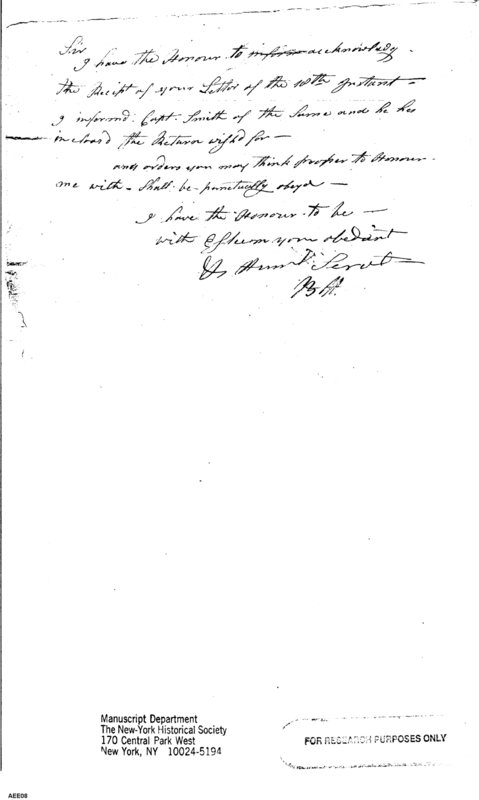 Sir
I have the Honour to inform acknowledg
the Receipt of your Letter of the 10th Instant –
I informd Capt. Smith of the Same and he has
inclosd the Return wishd for –
and orders you may think proper to Honour
me with – Shall be punctually obeyd –
I have the Honour to be –
with Esteem your obediant
Hum Servt
Manuscript Department
The New-York Historical Society
170 Central Park West
New York, NY 10024-5194
FOR RESEARCH PURPOSES ONLY
AEE08